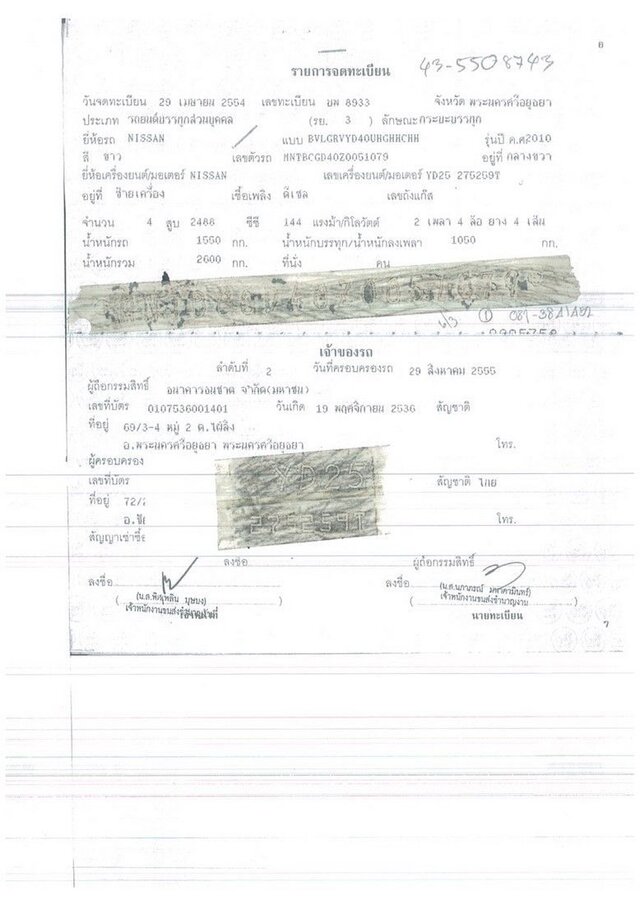 6
43-5508743
รายการจดทะเบียน
วันจดทะเบียน 29 เมษายน 2554 เลขทะเบียน 8933 จังหวัด พระนครศรีอยุธยา
ประเภท รถยนต์บรรทุกส่วนบุคคล (รย. 3 ) ลักษณะกระบะบรรทุก
ยี่ห้อรถ NISSAN แบบ BVLGRVYD40UHGHHCHH รุ่นปี ค.ศ2010
สี ขาว เลขตัวรถ MNTBCGD40Z0051079 อยู่ที่ กลางขวา
ยี่ห้อเครื่องยนต์/มอเตอร์ NISSAN เลขเครื่องยนต์/มอเตอร์ YD25 275259T
อยู่ที่ ซ้ายเครื่อง เชื้อเพลิง ดีเซล เลขถังแก๊ส
จำนวน 4 สูบ 2488 ซีซี 144 แรงม้า/กิโลวัตต์ 2 เพลา 4 ล้อ ยาง 4 เส้น
น้ำหนักรถ 1550 กก. น้ำหนักบรรทุก/น้ำหนักลงเพลา 1050 กก.
น้ำหนักรวม 2600 กก. ที่นั่ง คน
เจ้าของรถ
ลำดับที่ 2 วันที่ครอบครองรถ 29 สิงหาคม 2555
ผู้ถือกรรมสิทธิ์ ธนาคารธนชาต จำกัด(มหาชน)
เลขที่บัตร 0107536001401 วันเกิด 19 พฤศจิกายน 2536 สัญชาติ
ที่อยู่ 69/3-4 หมู่ 2 ต.ไผ่ลิง
อ.พระนครศรีอยุธยา พระนครศรีอยุธยา โทร.
ผู้ครอบครอง
เลขที่บัตร YD25 สัญชาติ ไทย
ที่อยู่ 72/
โทร.
สัญญาเช่าซื้อ
ลงชื่อ ผู้ถือกรรมสิทธิ์
ลงชื่อ ลงชื่อ
เจ้าพนักงานขนส่งชำนาญงาน
นายทะเบียน
7